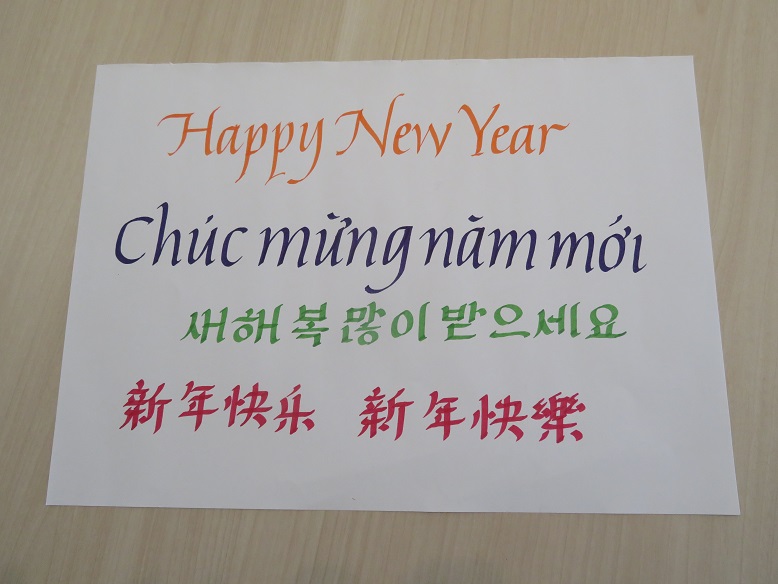 Happy New Year
Chúc mừng năm mới
새해 복 많이 받으세요
新年快乐 新年快樂